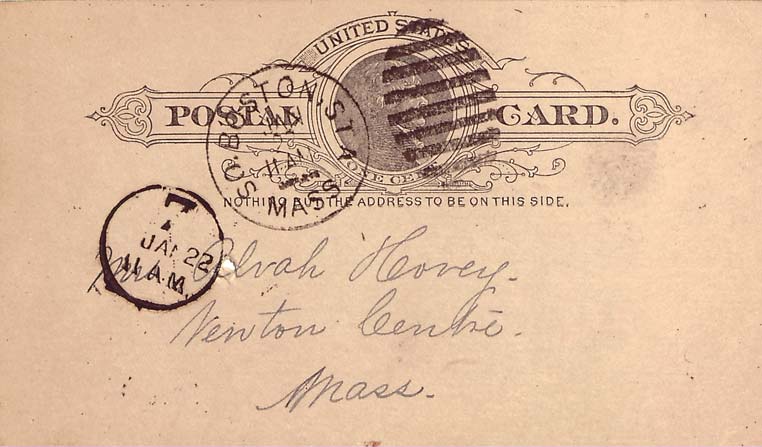 UNITED STATES
POSTAL CARD.
ONE CENT
NOTHING BUT THE ADDRESS TO BE ON THIS SIDE.
BOSTON. STA MASS.
11 AM
7
JAN 22
11 A.M.
Mrs. Alvah Hovey.
Newton Centre.
Mass.